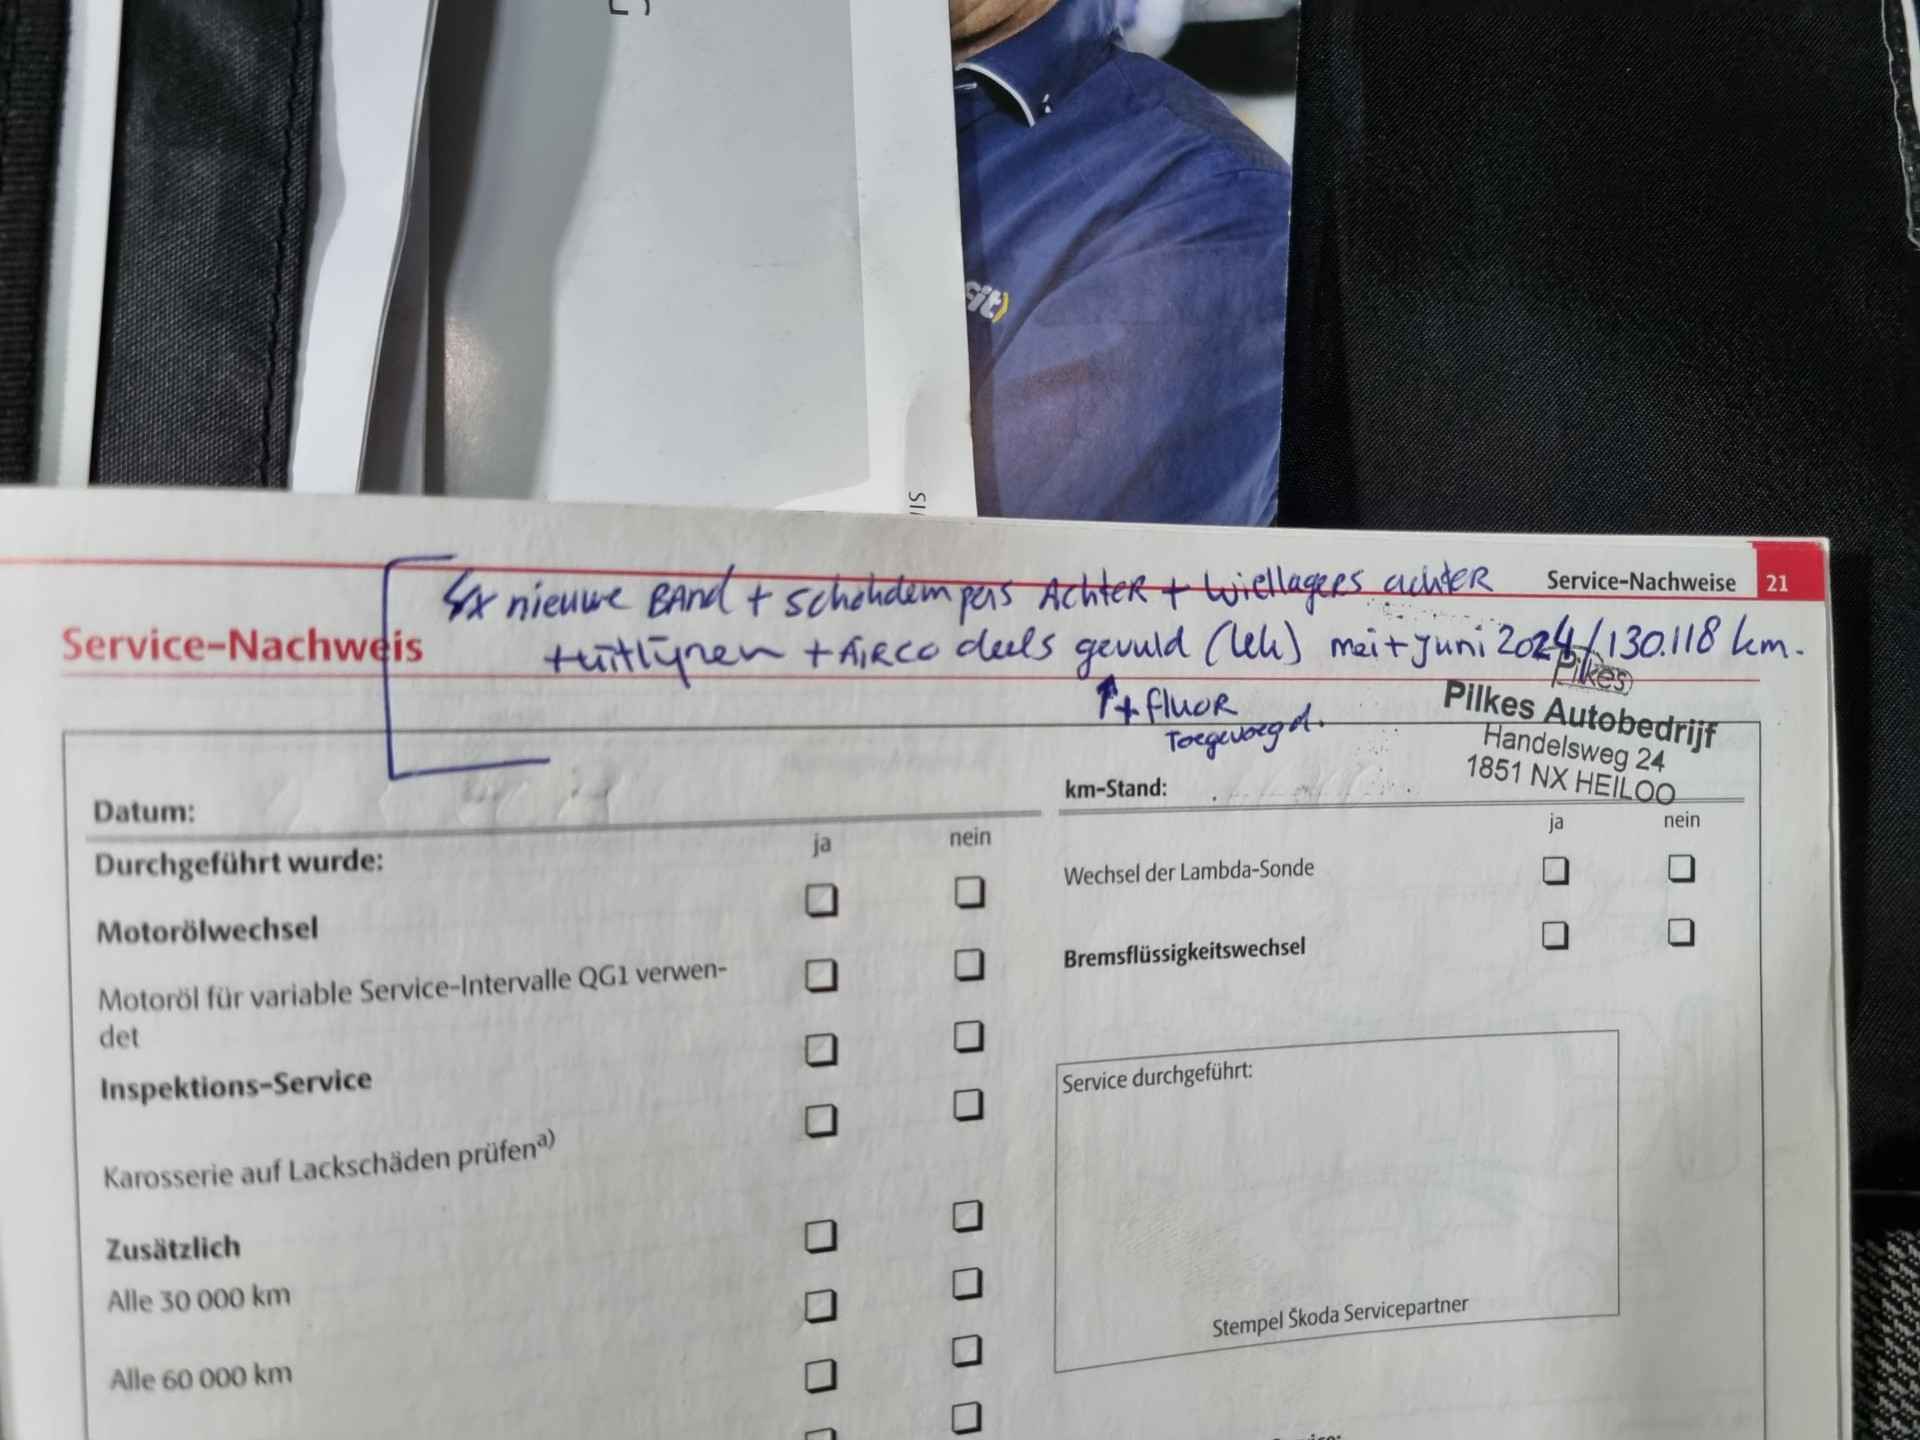 fit)
4x nieuwe BAnd + schokdempers AchteR + wiellageRs achteR
Service-Nachweise 21
Service-Nachweis
+uitlijnen + AiRco deels gevuld (lek) mei + juni 2024 / 130.118 km.
+ fluoR
Toegevoegd.
Pilkes
Pilkes Autobedrijf
Handelsweg 24
1851 NX HEILOO
Datum:
km-Stand:
ja nein
ja nein
Durchgeführt wurde:
Motorölwechsel
Motoröl für variable Service-Intervalle QG1 verwen-
det
Inspektions-Service
Karosserie auf Lackschäden prüfen a)
Zusätzlich
Alle 30 000 km
Alle 60 000 km
Wechsel der Lambda-Sonde
Bremsflüssigkeitswechsel
Service durchgeführt:
Stempel Škoda Servicepartner